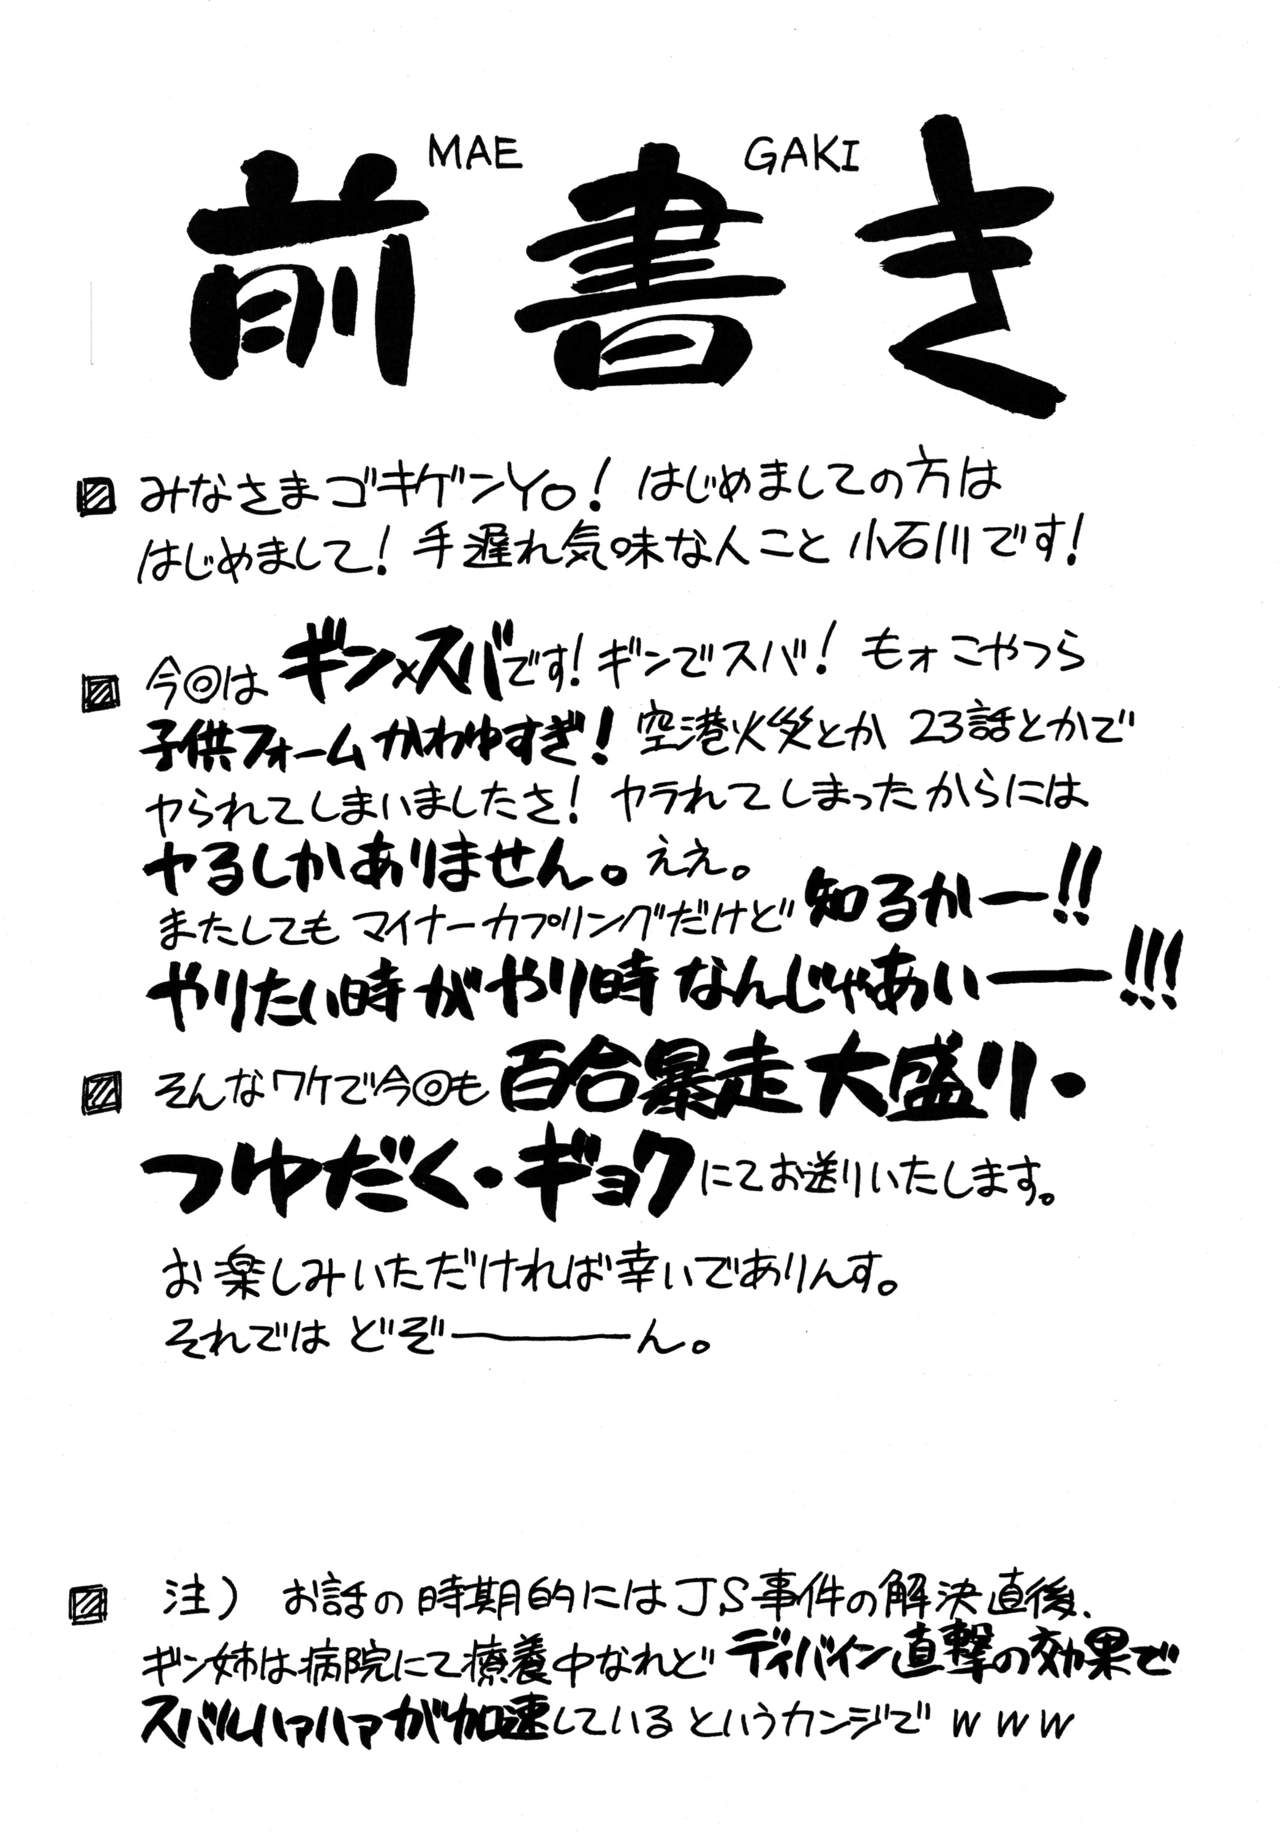 MAE GAKI
前書き
みなさまゴキゲンYo! はじめましての方は
はじめまして! 手遅れ気味な人こと 小石川です!
今◎は ギン×スバです! ギンでスバ! もォこやつら
子供フォームかわゆすぎ! 空港火災とか 23話とかで
ヤられてしまいましたさ! ヤラれてしまったからには
ヤるしかありません。ええ。
またしても マイナーカプリングだけど 知るかー!!
やりたい時がやり時なんじゃあいー!!!
そんなワケで今◎も 百合暴走大盛り・
つゆだく・ギョクにてお送りいたします。
お楽しみいただければ幸いでありんす。
それでは どぞーーん。
注) お話の時期的にはJS事件の解決直後、
ギン姉は病院にて療養中なれど ディバイン直撃の効果で
スバルハァハァが加速しているというカンジで www